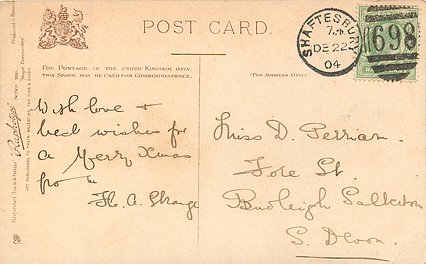 POST CARD.
FOR POSTAGE IN THE UNITED KINGDOM ONLY,
THIS SPACE MAY BE USED FOR CORRESPONDENCE.
(FOR ADDRESS ONLY.)
SHAFTESBURY
DE 22
04
698
With love &
best wishes for
a Merry Xmas
fro m
H. A. Strange
Miss D. Perriam.
Fore St.
Budleigh Salterton
S. Devon.